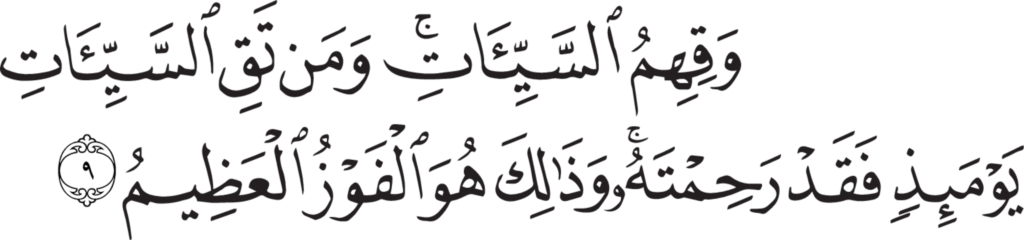 وَقِهِمُ ٱلسَّيِّـَٔاتِ ۚ وَمَن تَقِ ٱلسَّيِّـَٔاتِ
يَوْمَئِذٍ فَقَدْ رَحِمْتَهُۥ ۚ وَذَٰلِكَ هُوَ ٱلْفَوْزُ ٱلْعَظِيمُ ٩